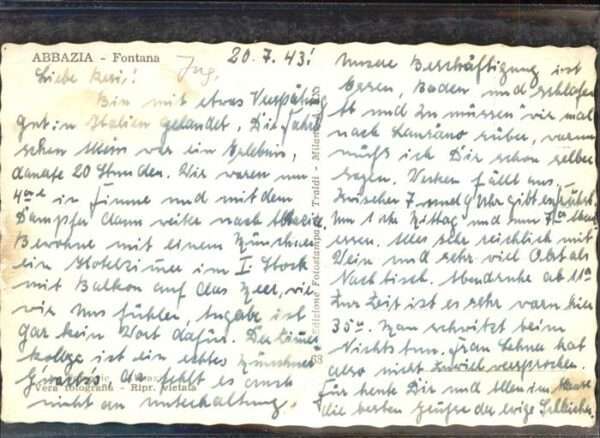 ABBAZIA - Fontana
20.7.43!
Liebe Resi!
Bin mit etwas Verspätung
gut in Italien gelandet. Die Fahrt
schon allein war ein Erlebnis,
dauerte 20 Stunden. Wir waren um
4 in Fiume und mit dem
Dampfer dann weiter nach Abbazia.
Bewohne mit einem Münchner
ein Hotelzimmer im I. Stock
mit Balkon auf das Meer, wie
wir uns fühlen,
gar kein Wort dafür. Der Zimmer
kollege ist ein echtes Münchner
da fehlt es uns
Vera fotografia - Ripr. vietata
nicht an Unterhaltung.
Edizione Fotostampa Traldi - Milano
Unsere Beschäftigung ist
Essen, Baden und schlafen
ab und zu müssen wir mal
nach rüber, warum
muß ich Dir schon selber
sagen.
Zwischen 7 und 9 Uhr gibt es
Um 1 Uhr Mittag und um 7
essen. Alles sehr reichlich mit
Wein und sehr viel Obst als
Nachtisch. Abendruhe ab 11
Zur Zeit ist es sehr warm hier
35°. Man schwitzt beim
Nichtstun. Frau Lehner hat
also nicht zuviel versprochen.
Für heute Dir und allen im Hause
die besten Grüße der ewige